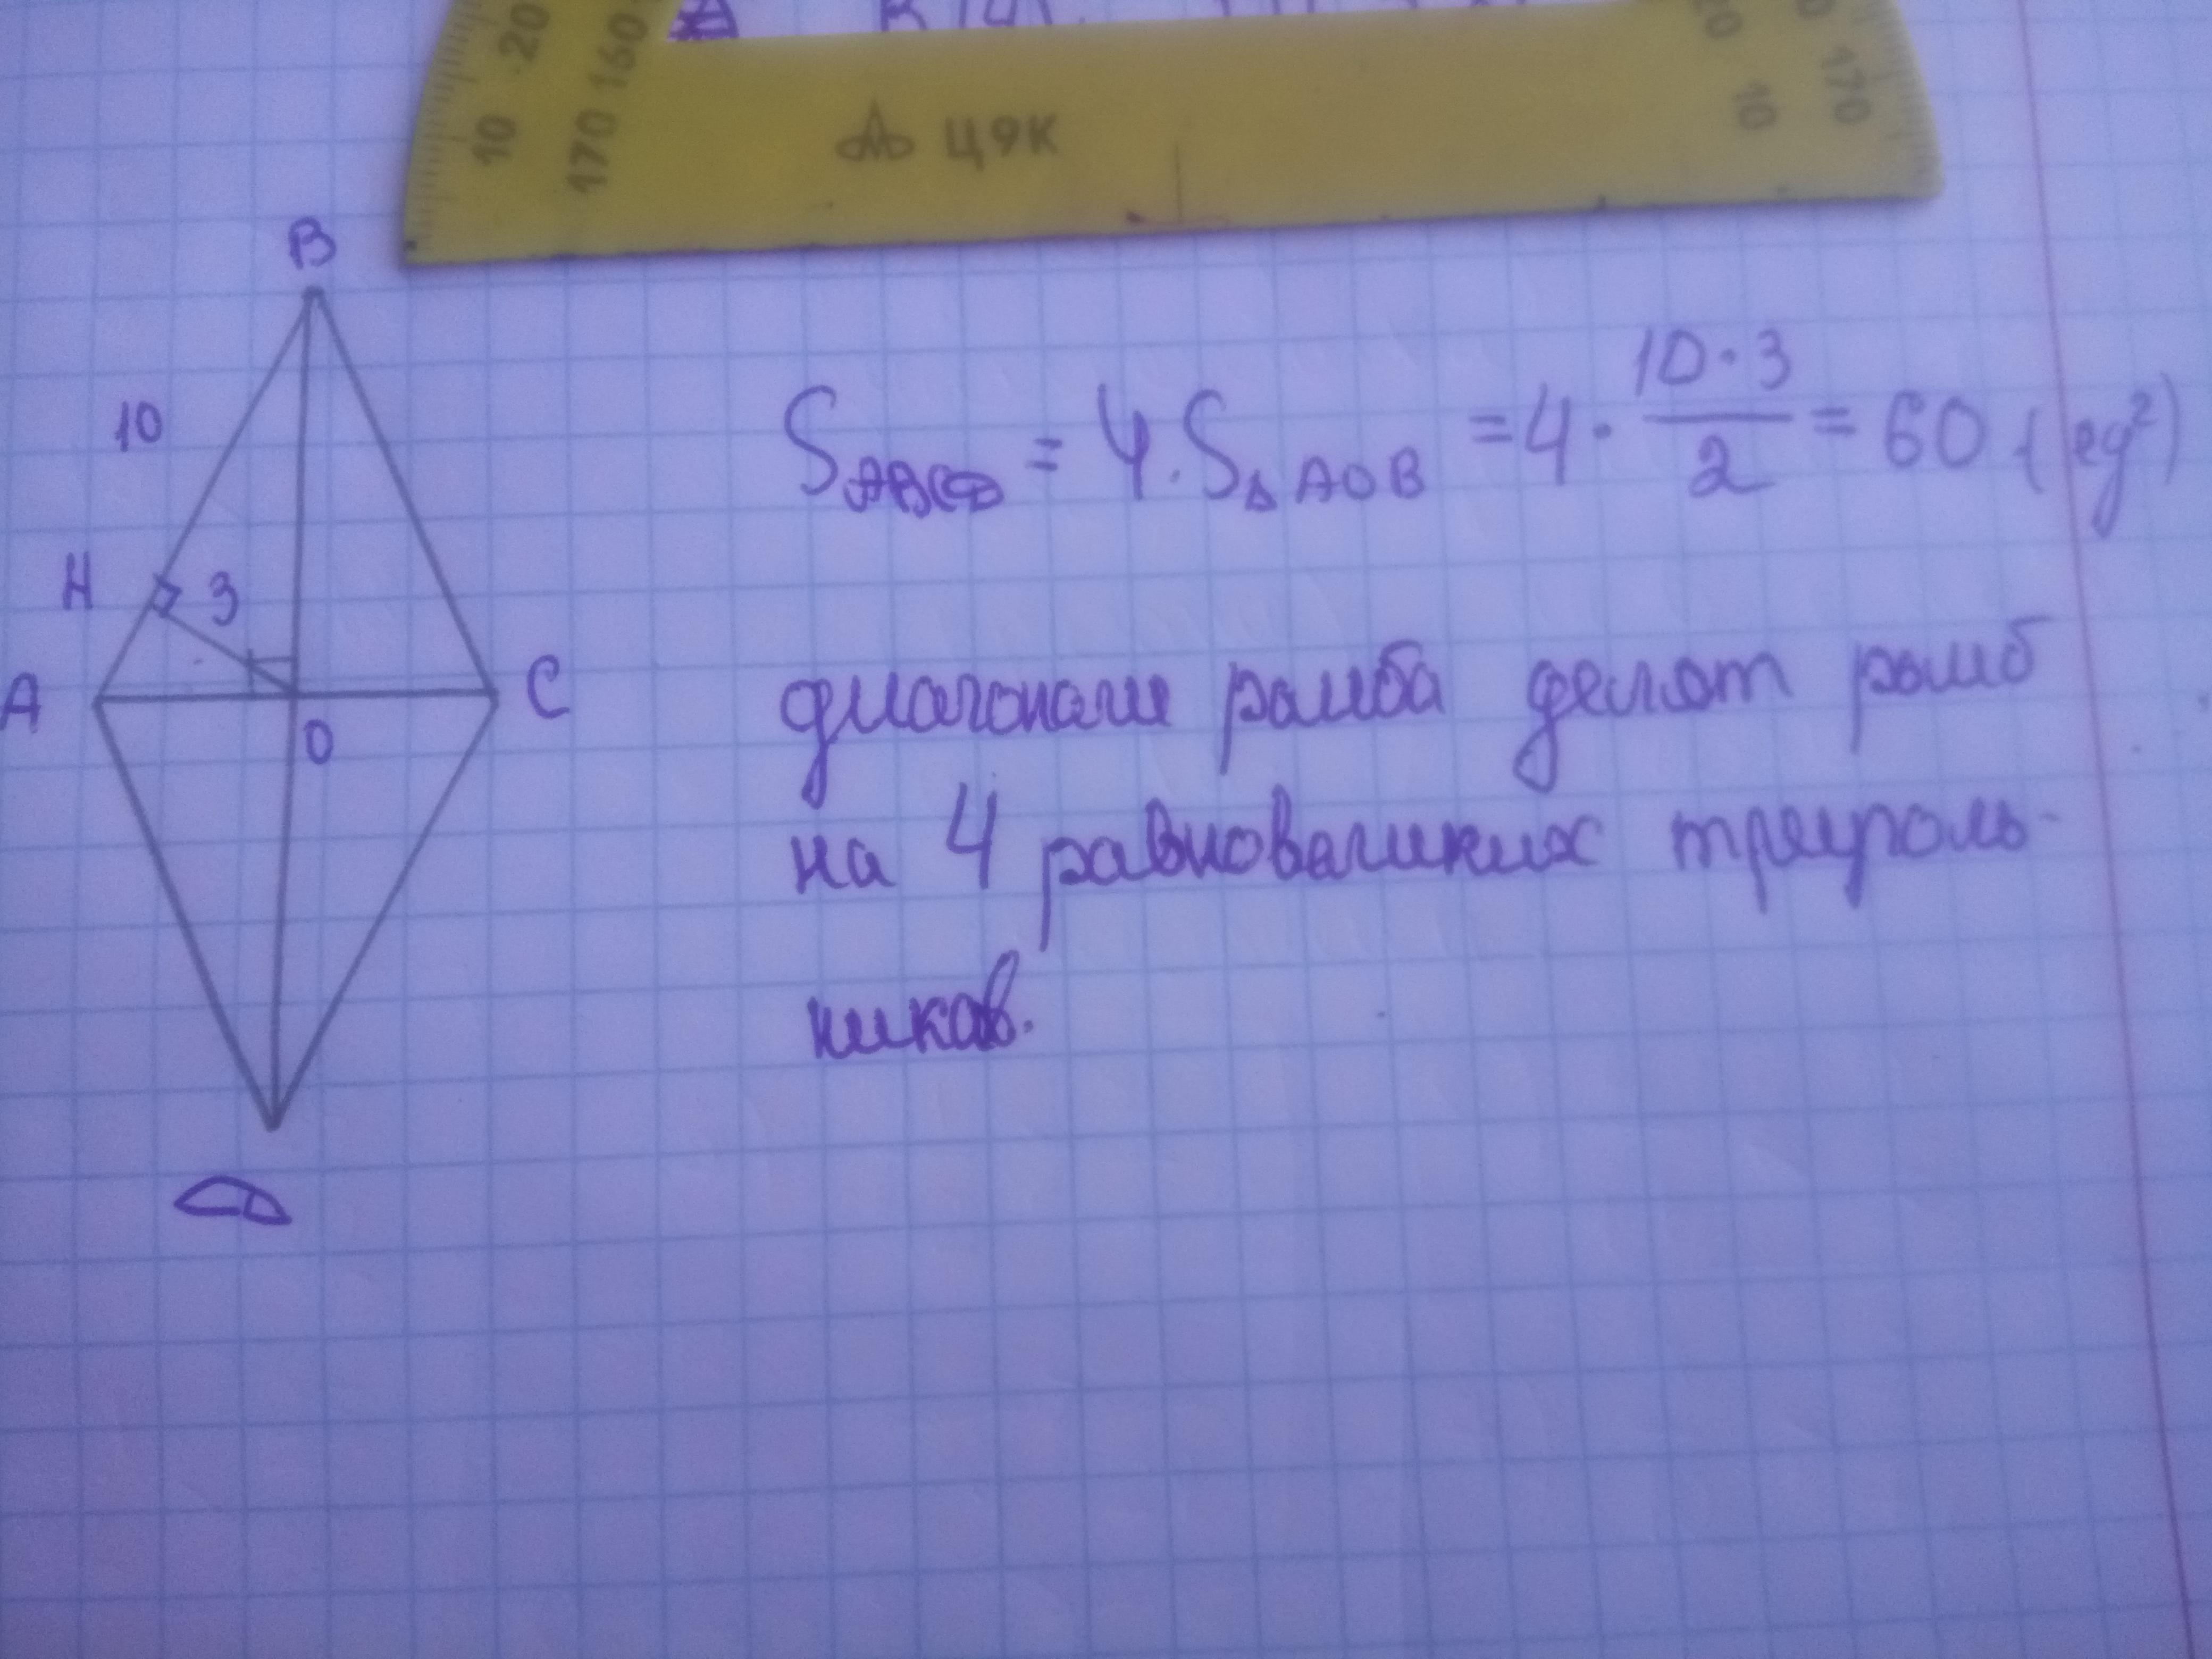 20 160
10 170
ЦЯК
20 170
10
B
10
H 3
A C
O
D
S ABCD = 4 · S Δ AOB = 4 · 10 · 3 / 2 = 60 (ед²)
диагонали ромба делят ромб
на 4 равновеликих треуголь-
ников.